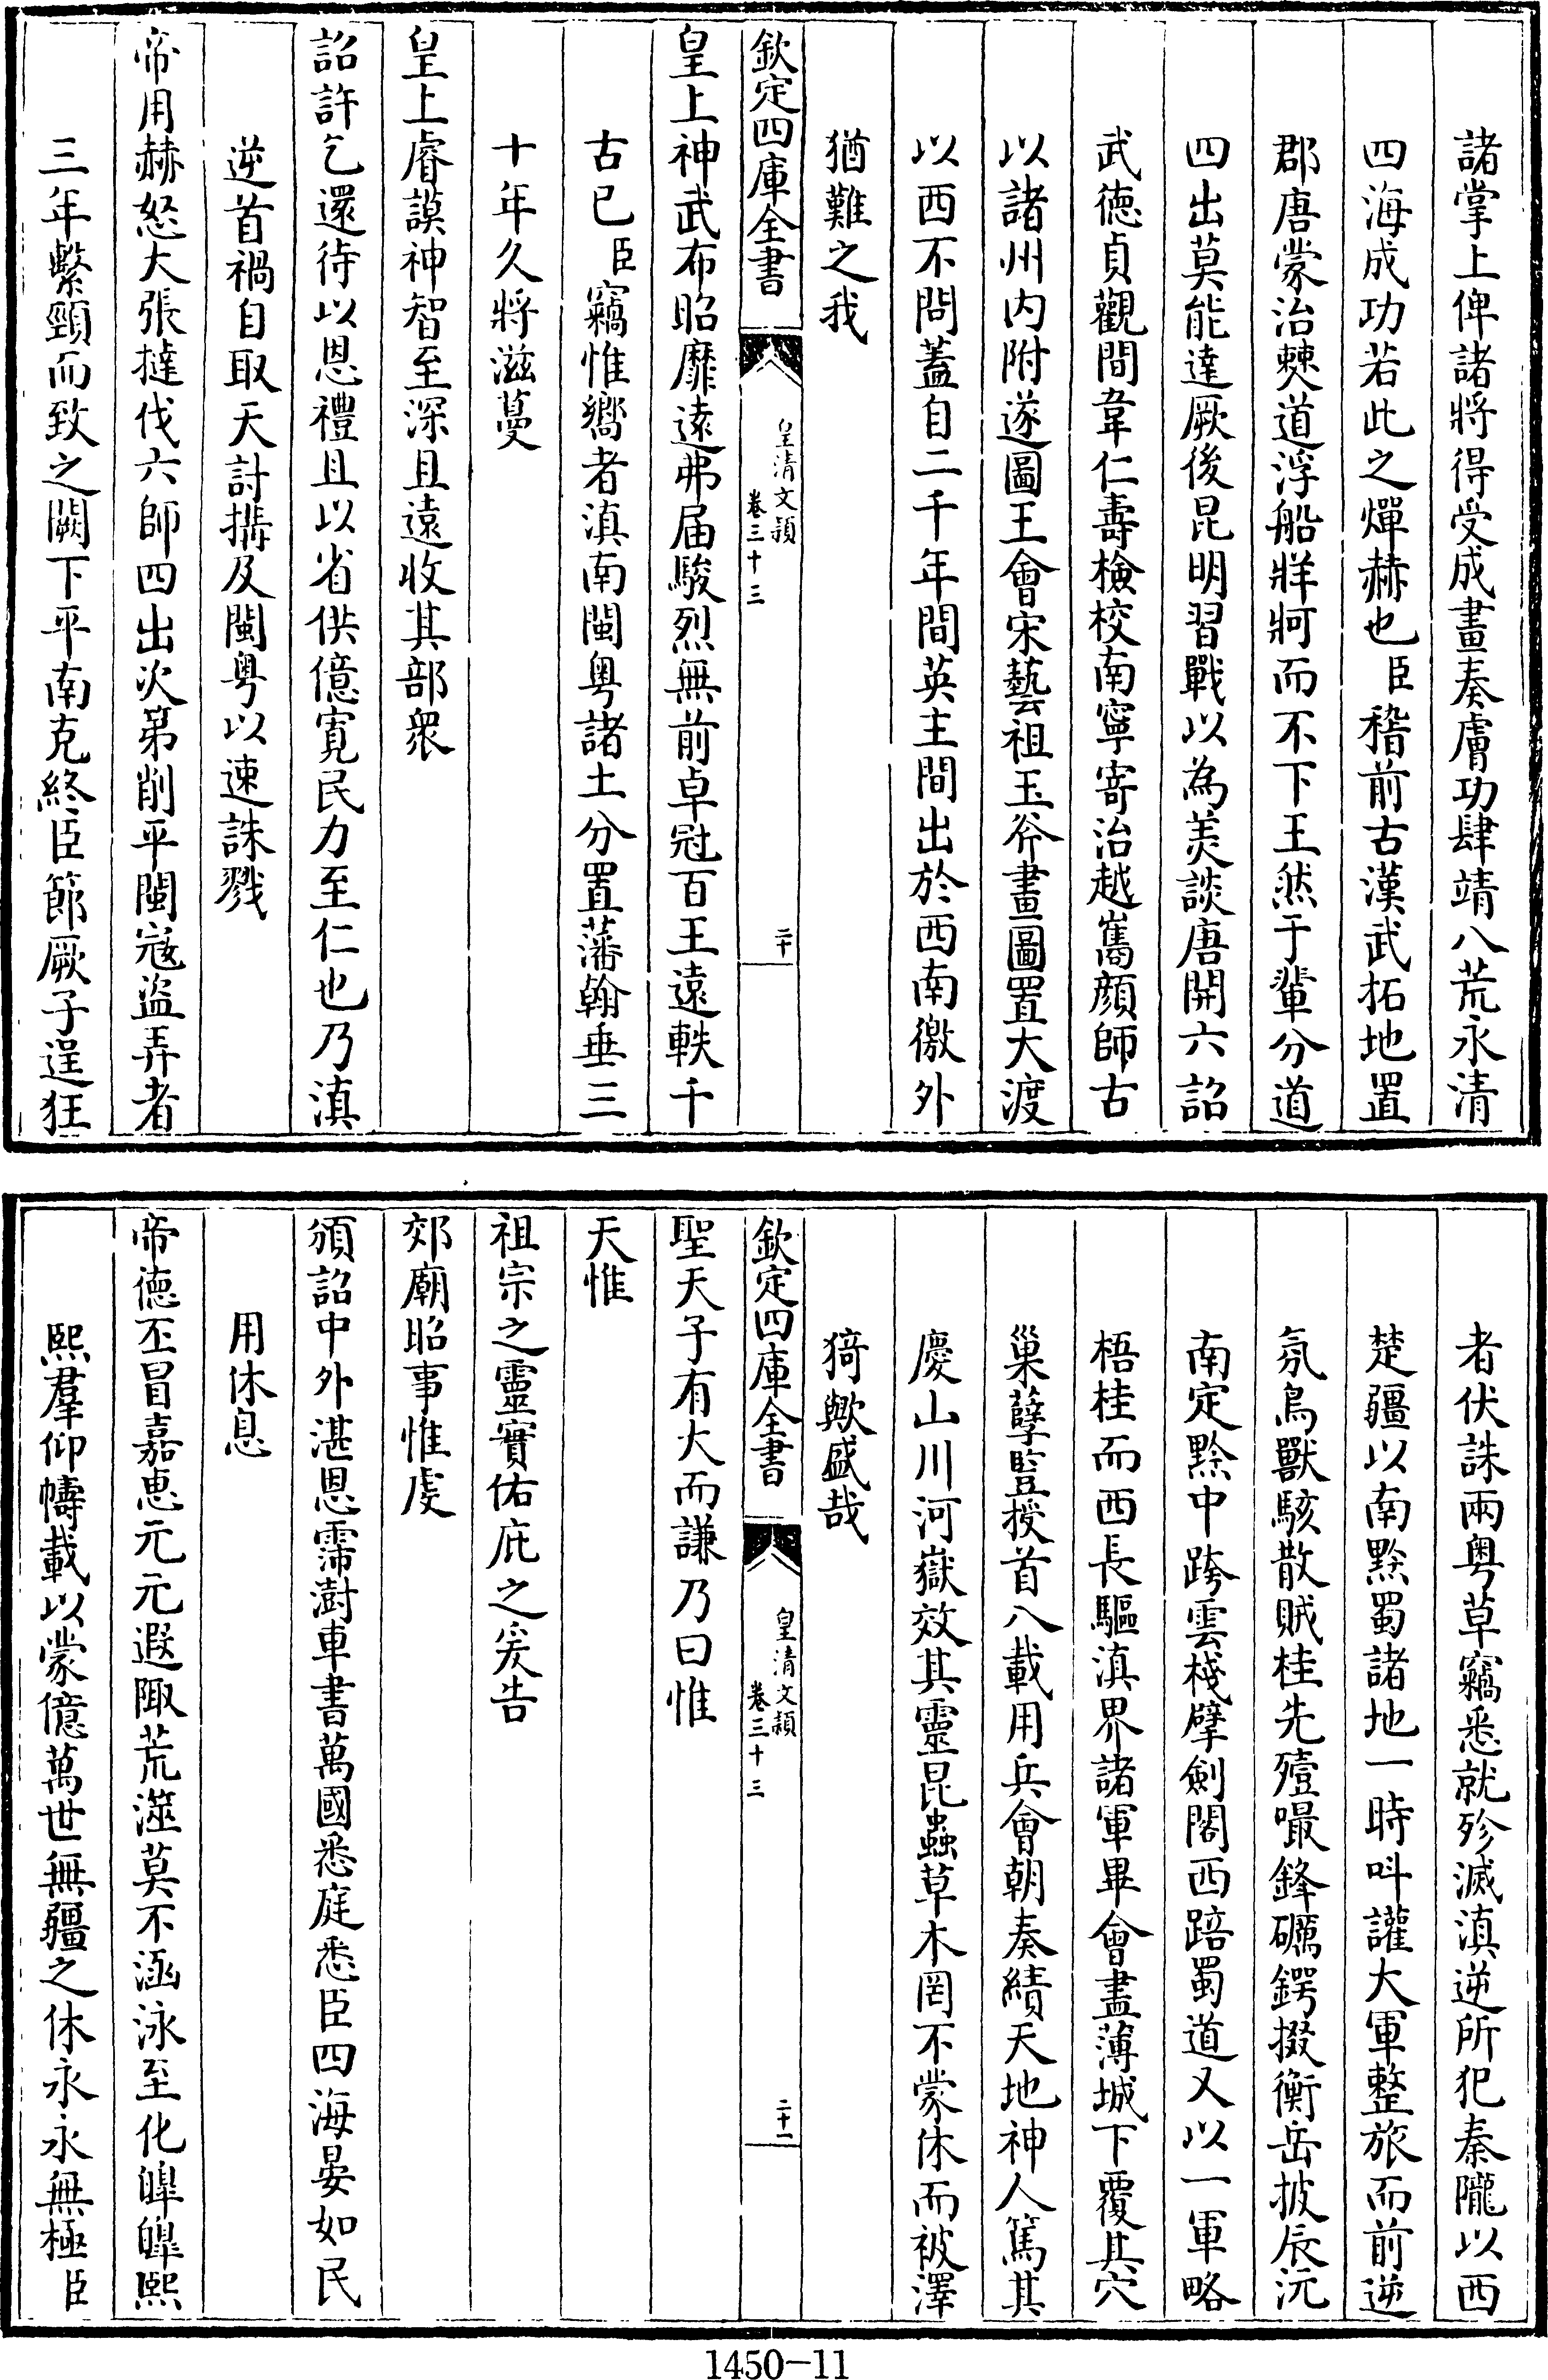 諸掌上俾諸將得受成畫奏膚功肆靖八荒永清
四海成功若此之燀赫也臣稽前古漢武拓地置
郡唐蒙治僰道浮船牂牁而不下王然于輩分道
四出莫能達厥後昆明習戰以為羙談唐開六詔
武德貞觀間韋仁壽檢校南寧寄治越嶲顔師古
以諸州内附遂圖王會宋藝祖玉斧畫圖置大渡
以西不問蓋自二千年間英主間出於西南徼外
猶難之我
欽定四庫全書
皇清文穎
卷三十三
二十
皇上神武布昭靡遠弗届駿烈無前卓冠百王遠軼千
古已臣竊惟嚮者滇南閩粤諸土分置藩翰垂三
十年久將滋蔓
皇上睿謨神智至深且遠收其部衆
詔許乞還待以恩禮且以省供億寛民力至仁也乃滇
逆首禍自取天討搆及閩粤以速誅戮
帝用赫怒大張撻伐六師四出次第削平閩寇盜弄者
三年繫頸而致之闕下平南克終臣節厥子逞狂
者伏誅兩粤草竊悉就殄滅滇逆所犯秦隴以西
楚疆以南黔蜀諸地一時呌讙大軍整旅而前逆
氛鳥獸駭散賊桂先殪嘬鋒礪鍔掇衡岳披辰沅
南定黔中跨雲棧擘劍閣西踣蜀道又以一軍略
梧桂而西長驅滇界諸軍畢會盡薄城下覆其穴
巢孽豎授首八載用兵會朝奏績天地神人篤其
慶山川河嶽效其靈昆蟲草木罔不蒙休而被澤
猗歟盛哉
欽定四庫全書
皇清文穎
卷三十三
二十一
聖天子有大而謙乃曰惟
天惟
祖宗之靈實佑庇之爰告
郊廟昭事惟虔
頒詔中外湛恩霈澍車書萬國悉庭悉臣四海晏如民
用休息
帝德丕冒嘉惠元元遐陬荒澨莫不涵泳至化皞皞熙
熙羣仰幬載以蒙億萬世無疆之休永永無極臣
1450-11